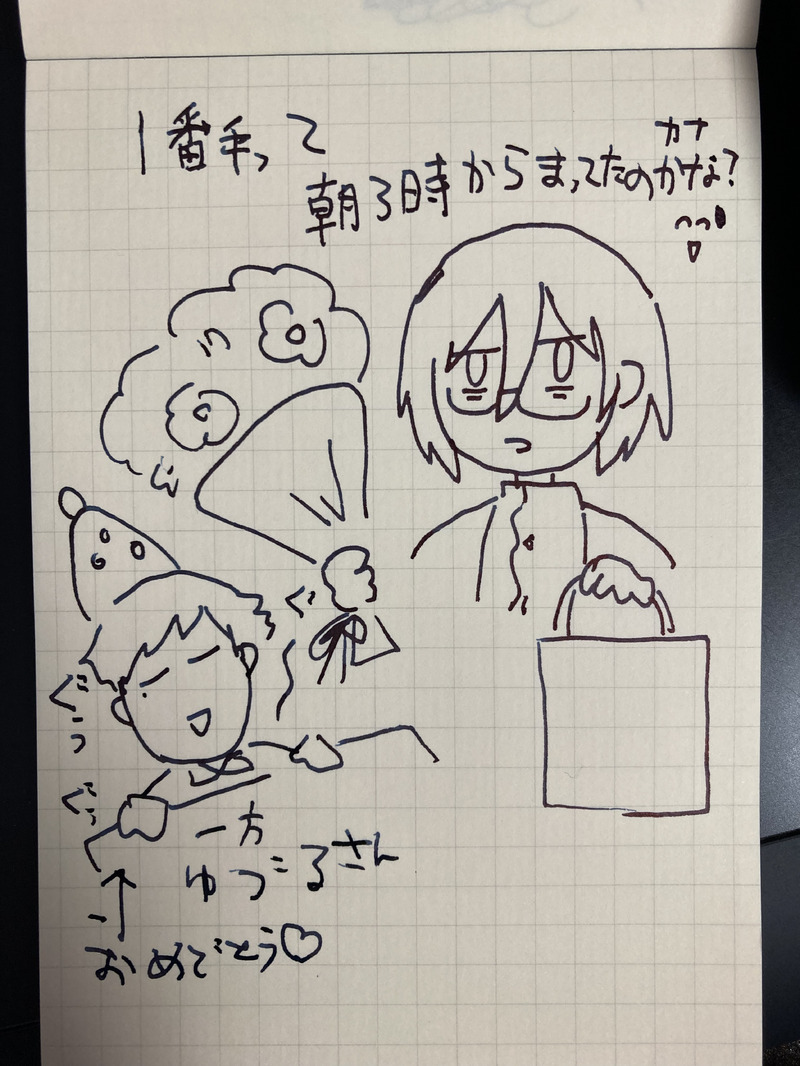 1番手って
朝3時からまってたのかなな?
カナ
ぐ
ぐぅ
ぐぅ
一方
ゆづるさん
おめでとう♡